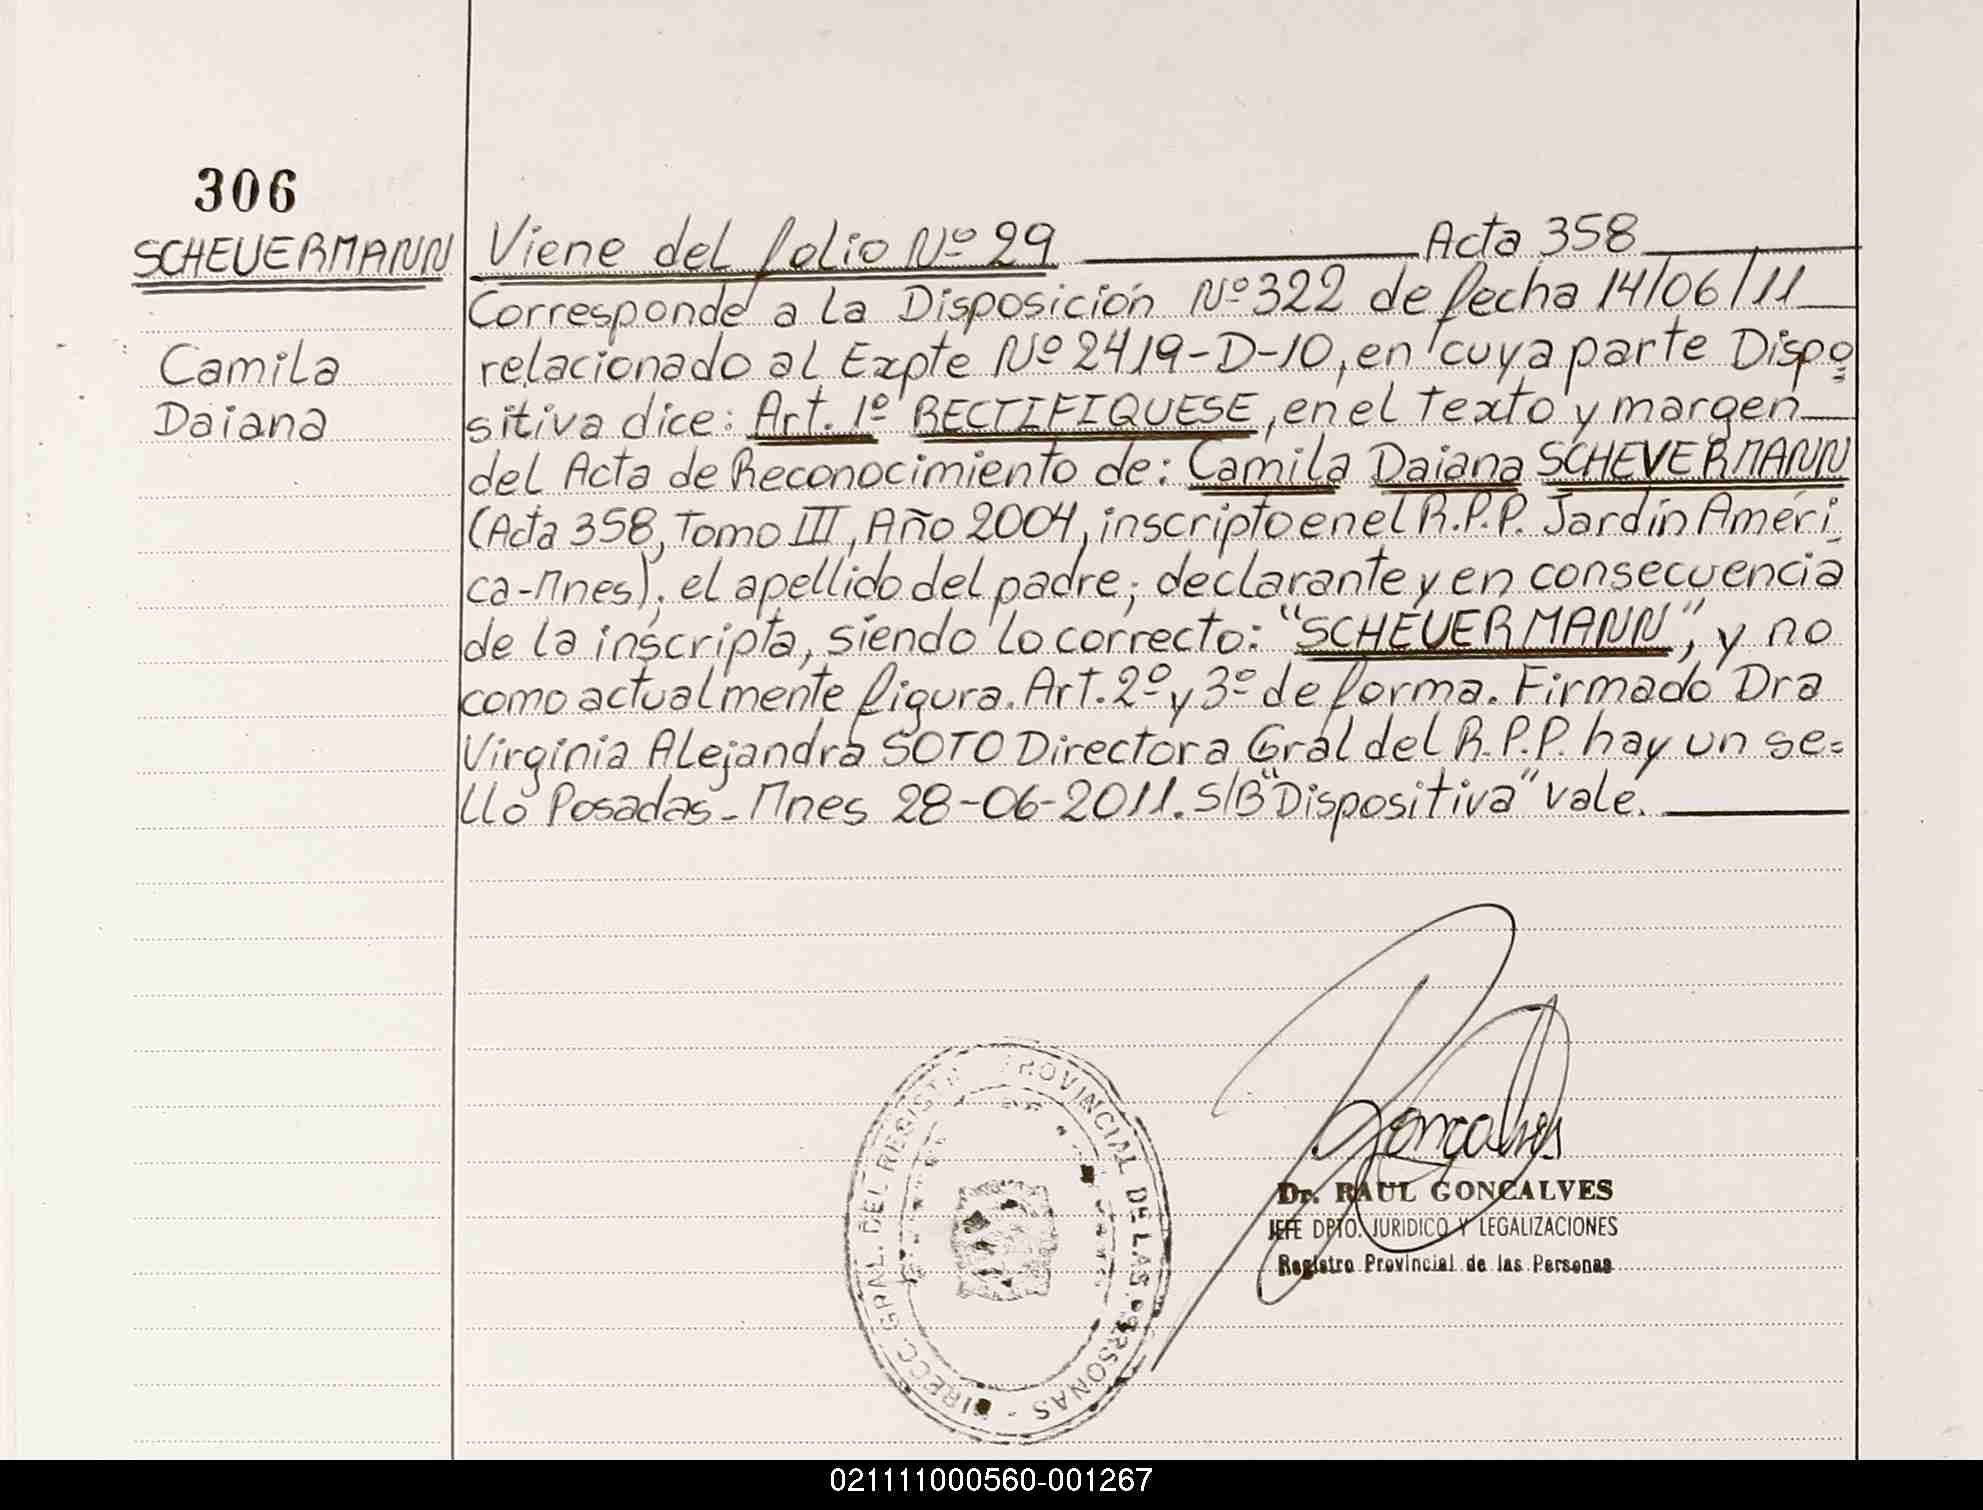 306
SCHEUERMANN
Camila
Daiana
Viene del folio Nº 29 Acta 358
Corresponde a la Disposición Nº 322 de fecha 14/06/11
relacionado al Expte Nº 2419-D-10, en cuya parte Dispo
sitiva dice: Art. 1º RECTIFIQUESE, en el texto y margen
del Acta de Reconocimiento de: Camila Daiana SCHEVERMANN
(Acta 358, Tomo III, Año 2004, inscripto en el R.P.P. Jardín Améri
ca-Mnes), el apellido del padre; declarante y en consecuencia
de la inscripta, siendo lo correcto: "SCHEUERMANN", y no
como actualmente figura. Art. 2º y 3º de forma. Firmado Dra
Virginia Alejandra SOTO Directora Gral del R.P.P. hay un se=
llo Posadas - Mnes 28-06-2011. S/B "Dispositiva" vale.
Goncalves
Dr. RAUL GONCALVES
JEFE DPTO. JURIDICO Y LEGALIZACIONES
Registro Provincial de las Personas
DIRECC. GRAL. DEL REGISTR PROVINCIAL DE LAS PERSONAS -
021111000560-001267